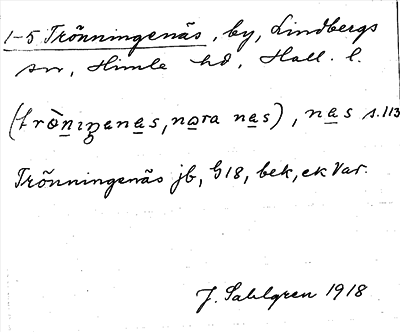 1-5 Trönningenäs, by, Lindbergs
sn, Himle hd, Hall. l.
(trònıŋenas, nora nas), nas s.113
Trönningenäs jb, G18, bek, ek Var.
J. Sahlgren 1918